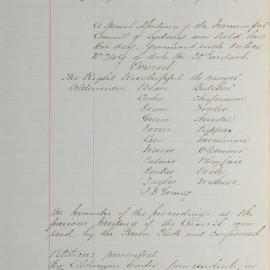 A Special Meeting of the Municipal
Council of Sydney was held here
this day. Pursuant with Notice
of date the 30th instant
Present
The Right Worshipful the Mayor
Aldermen Beare Butcher
Carter Chapman
Dean Fowler
Green Hardie
Jones Kippax
Lees Merriman
Meeve O'Connor
Palmer Playfair
Pawley Poole
Taylor Withers
J D Young
The Minutes of the proceedings at the
previous Meeting of the Council were
read by the Town Clerk and confirmed
Petitions presented
By Alderman Carter from residents in